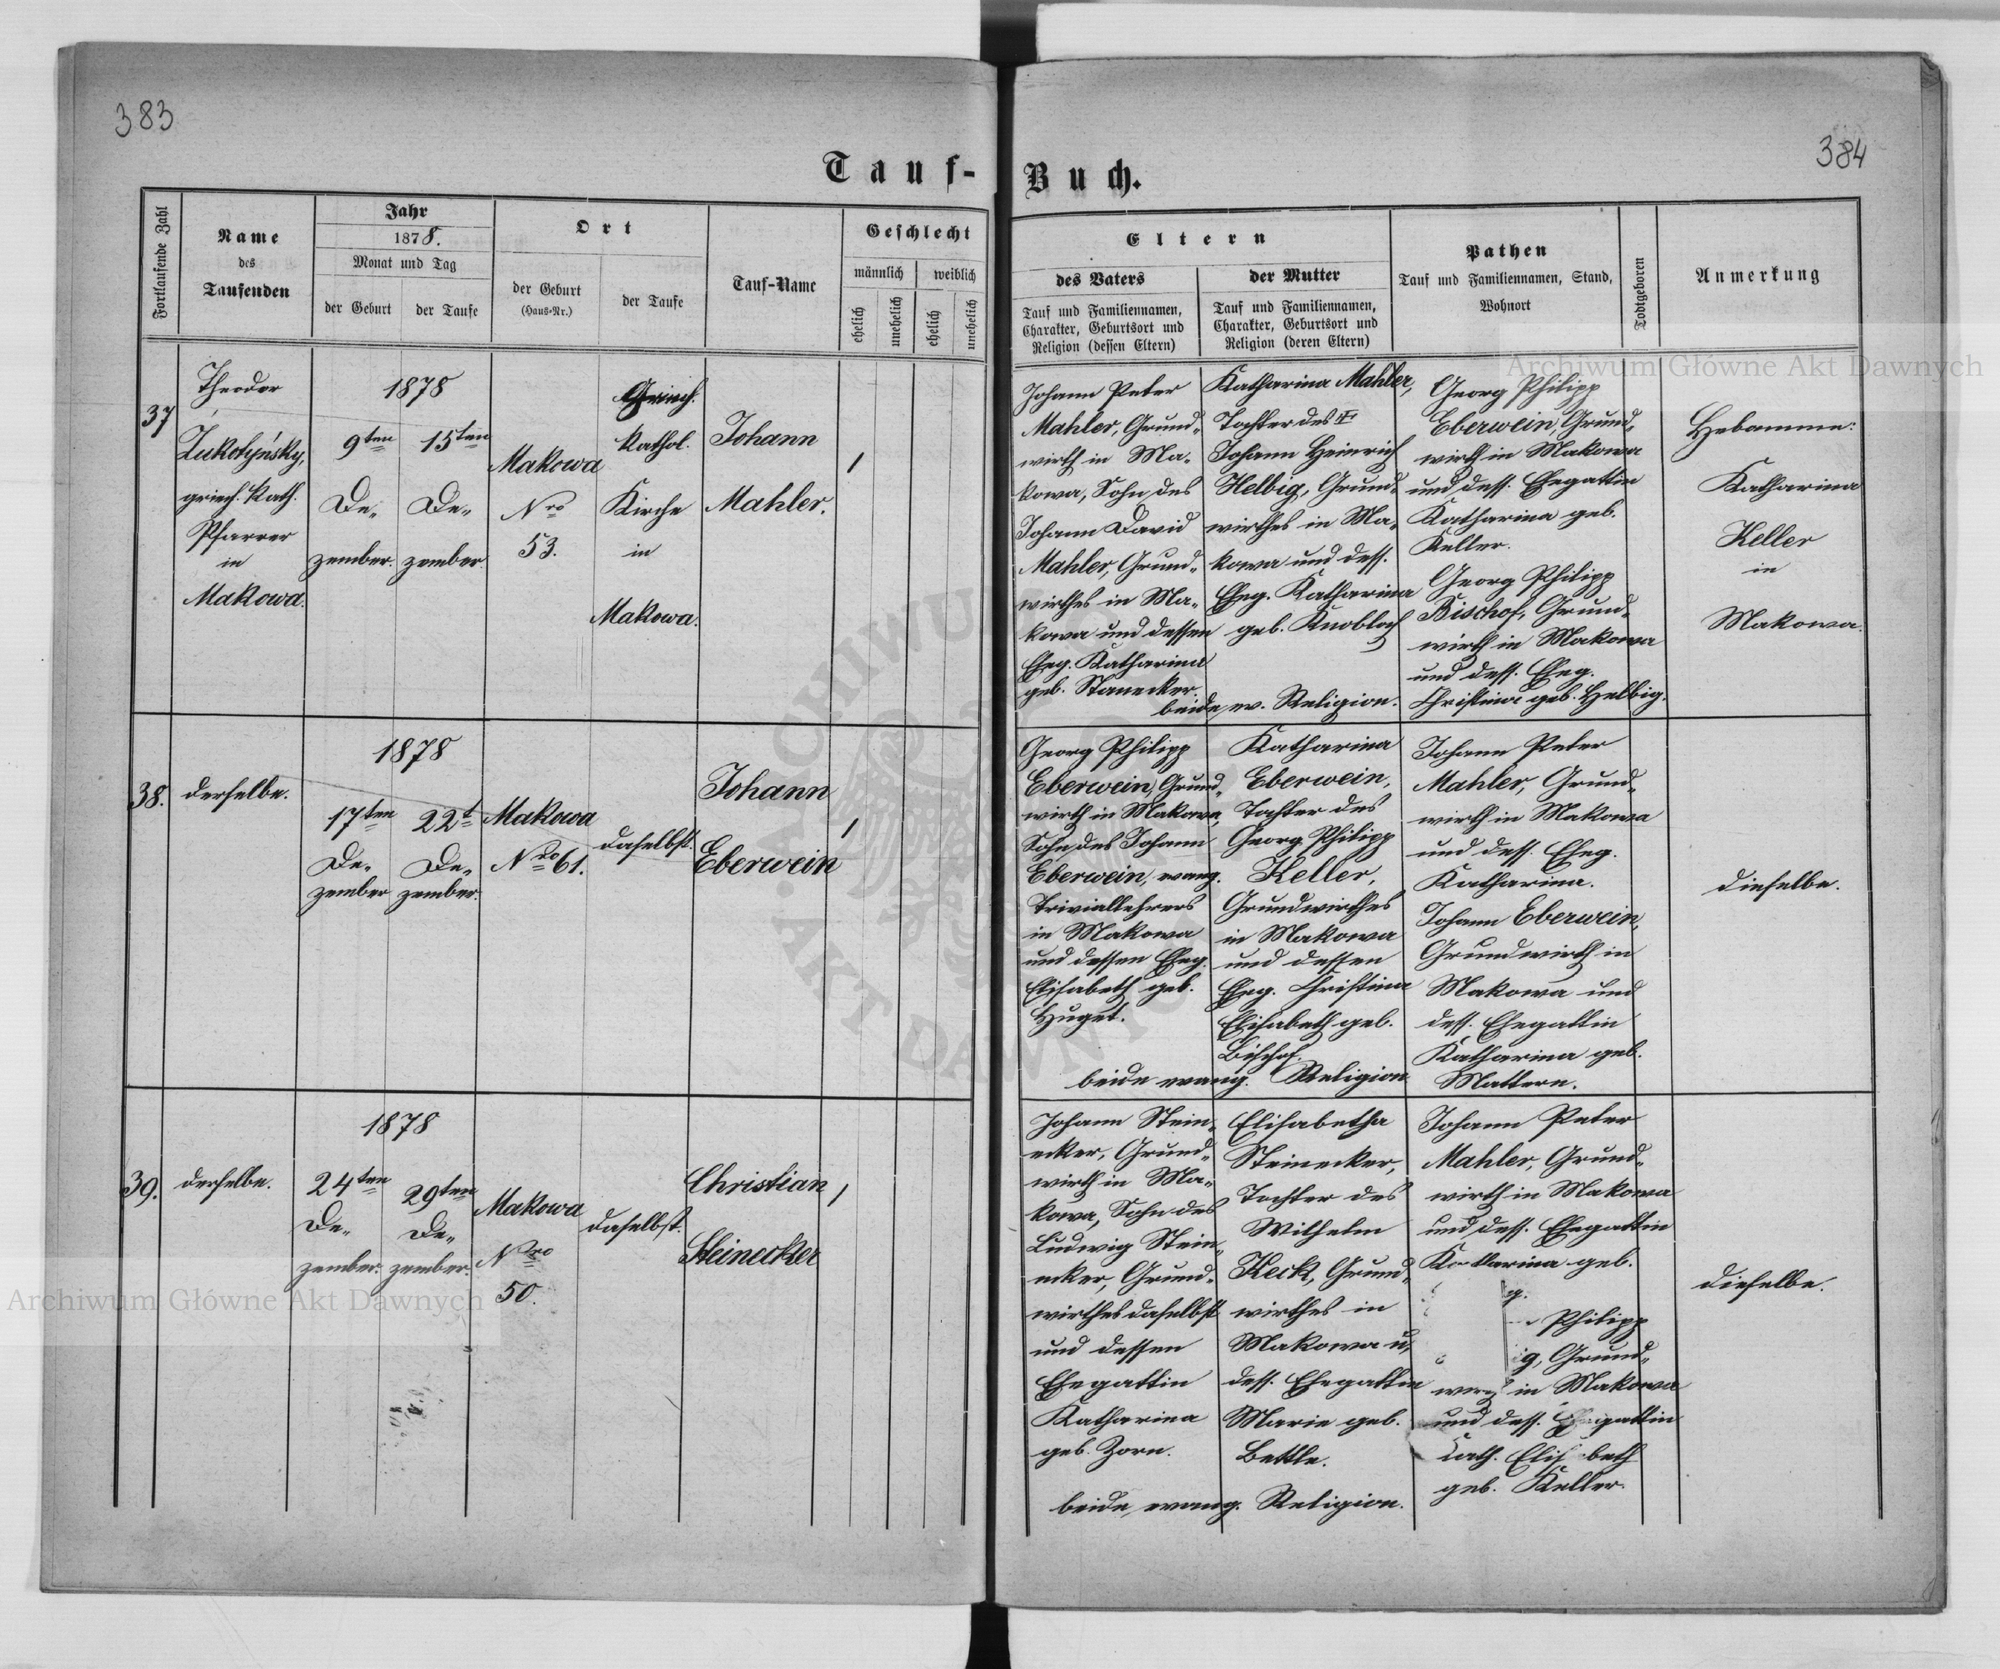 383
384
Tauf-
Buch.
Fortlaufende Zahl
Name
des
Taufenden
Jahr
1878.
Monat und Tag
der Geburt
der Taufe
Ort
der Geburt
(Haus-Nr.)
der Taufe
Tauf-Name
Geschlecht
männlich
weiblich
ehelich
unehelich
ehelich
unehelich
Eltern
des Vaters
Tauf und Familiennamen,
Charakter, Geburtsort und
Religion (dessen Eltern)
der Mutter
Tauf und Familiennamen,
Charakter, Geburtsort und
Religion (deren Eltern)
Pathen
Tauf und Familiennamen, Stand,
Wohnort
Todtgeboren
Anmerkung
37
Theodor
Lukotyńsky,
griech. kath.
Pfarrer
in
Makowa.
1878
9ten
De-
zember.
15ten
De-
zember.
Makowa
Nro
53.
Griech.
kathol.
Kirche
in
Makowa.
Johann
Mahler.
/
Johann Peter
Mahler, Grund-
wirth in Ma-
kowa, Sohn des
Johann David
Mahler, Grund-
wirthes in Ma-
kowa und dessen
Eheg. Katharina
geb. Stanecker.
Katharina Mahler,
Tochter des
Johann Heinrich
Helbig, Grund-
wirthes in Ma-
kowa und dess.
Eheg. Katharina
geb. Knobloch
beide ev. Religion.
Georg Philipp
Eberwein, Grund-
wirth in Makowa
und dess. Ehegattin
Katharina geb.
Keller.
Georg Philipp
Bischof, Grund-
wirth in Makowa
und dess. Eheg.
Christina geb. Helbig.
Hebamme:
Katharina
Keller
in
Makowa.
38.
derselbe.
1878
17ten
De-
zember
22t
De-
zember.
Makowa
Nro 61.
daselbst.
Johann
Eberwein
/
Georg Philipp
Eberwein, Grund-
wirth in Makowa,
Sohn des Johann
Eberwein, evang.
Triviallehrers
in Makowa
und dessen Eheg.
Elisabeth geb.
Huget.
Katharina
Eberwein,
Tochter des
Georg Philipp
Keller,
Grundwirthes
in Makowa
und dessen
Eheg. Christina
Elisabeth geb.
Bischof.
beide evang. Religion
Johann Peter
Mahler, Grund-
wirth in Makowa
und dess. Eheg.
Katharina.
Johann Eberwein,
Grundwirth in
Makowa und
dess. Ehegattin
Katharina geb.
Mattern.
dieselbe.
39.
derselbe.
1878
24ten
De-
zember.
29ten
De-
zember.
Makowa
Nro
50.
daselbst.
Christian
Steinecker
/
Johann Stein-
ecker, Grund-
wirth in Ma-
kowa, Sohn des
Ludwig Stein-
ecker, Grund-
wirthes daselbst
und dessen
Ehegattin
Katharina
geb. Zorn.
Elisabetha
Steinecker,
Tochter des
Wilhelm
Keck, Grund-
wirthes in
Makowa u,
dess. Ehegattin
Marie geb.
Bettle.
beide evang. Religion.
Johann Peter
Mahler, Grund-
wirth in Makowa
und dess. Ehegattin
Katharina geb.
g.
Philipp
ig, Grund-
wirth in Makowa
und dess. Ehegattin
Cath. Elisabeth
geb. Keller.
dieselbe.
Archiwum Główne Akt Dawnych
Archiwum Główne Akt Dawnych